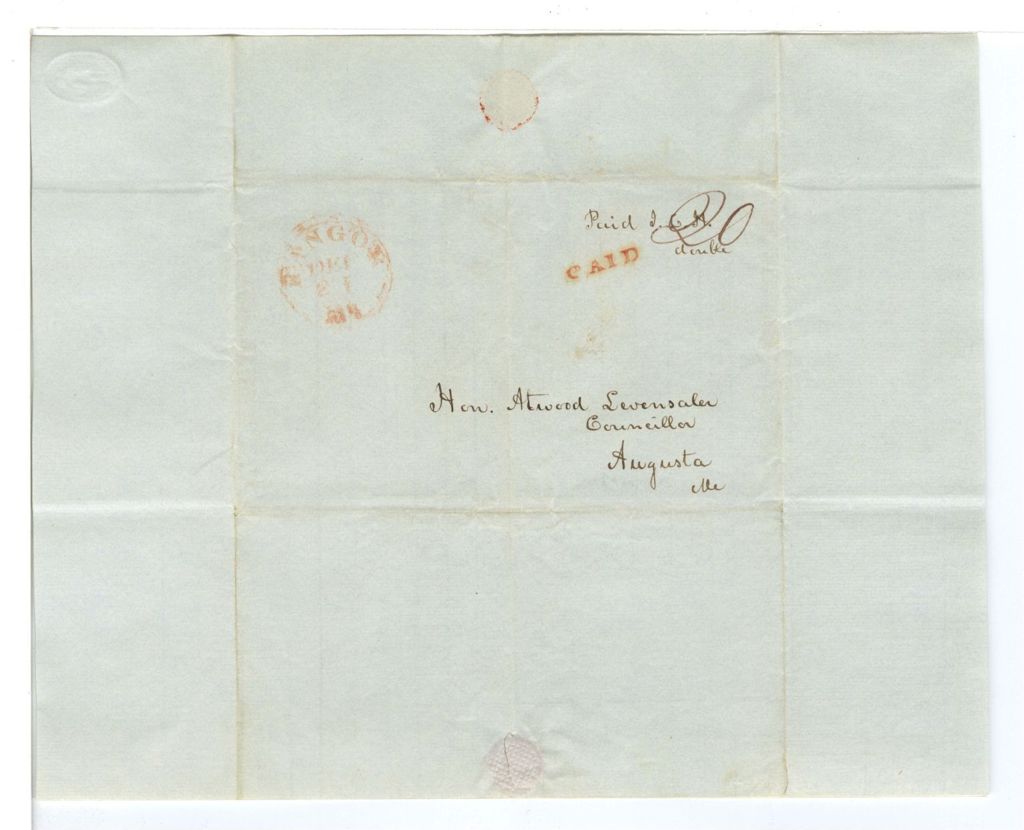 Paid J. C. H. 20
double
PAID
BANGOR
DEC
21
Me
Hon. Atwood Levensaler
Councillor
Augusta
Me